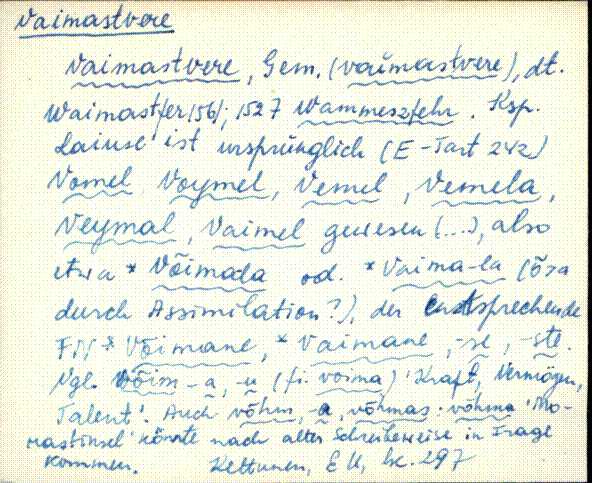 Vaimastvere
Vaimastvere, Gem. (vaìmastvere), dt.
Waimastfer 1561; 1527 Wammeszfehr. Ksp.
Laiuse ist ursprünglich (E-Tart 242)
Vomel, Voymel, Vemel, Vemela,
Veymal, Vaimel gewesen (...), also
etwa *Võimala od. *Vaima-la (õ>a
durch Assimilation?), der entsprechende
FN *Võimane, *Vaimane, -se, -ste.
Vgl. võim -a, -u (fi. voima) 'Kraft, Vermögen,
Talent'. Auch võhm, -a, võhmas : võhma 'Mo-
rastinsel' könnte nach alter Schreibweise in Frage
kommen. Kettunen, EU, lk. 297